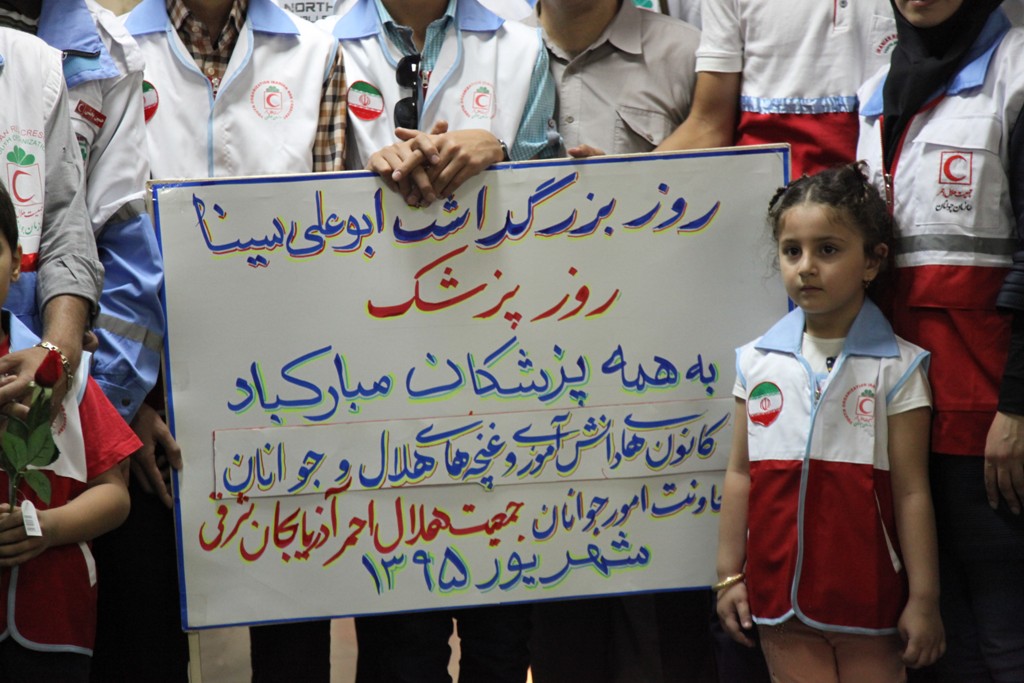 NORTH
روز بزرگداشت ابوعلی سینا
روز پزشک
به همه پزشکان مبارکباد
کانون های دانش آموزی و غنچه های هلال و جوانان
معاونت امور جوانان جمعیت هلال احمر آذربایجان شرقی
شهریور ۱۳۹۵